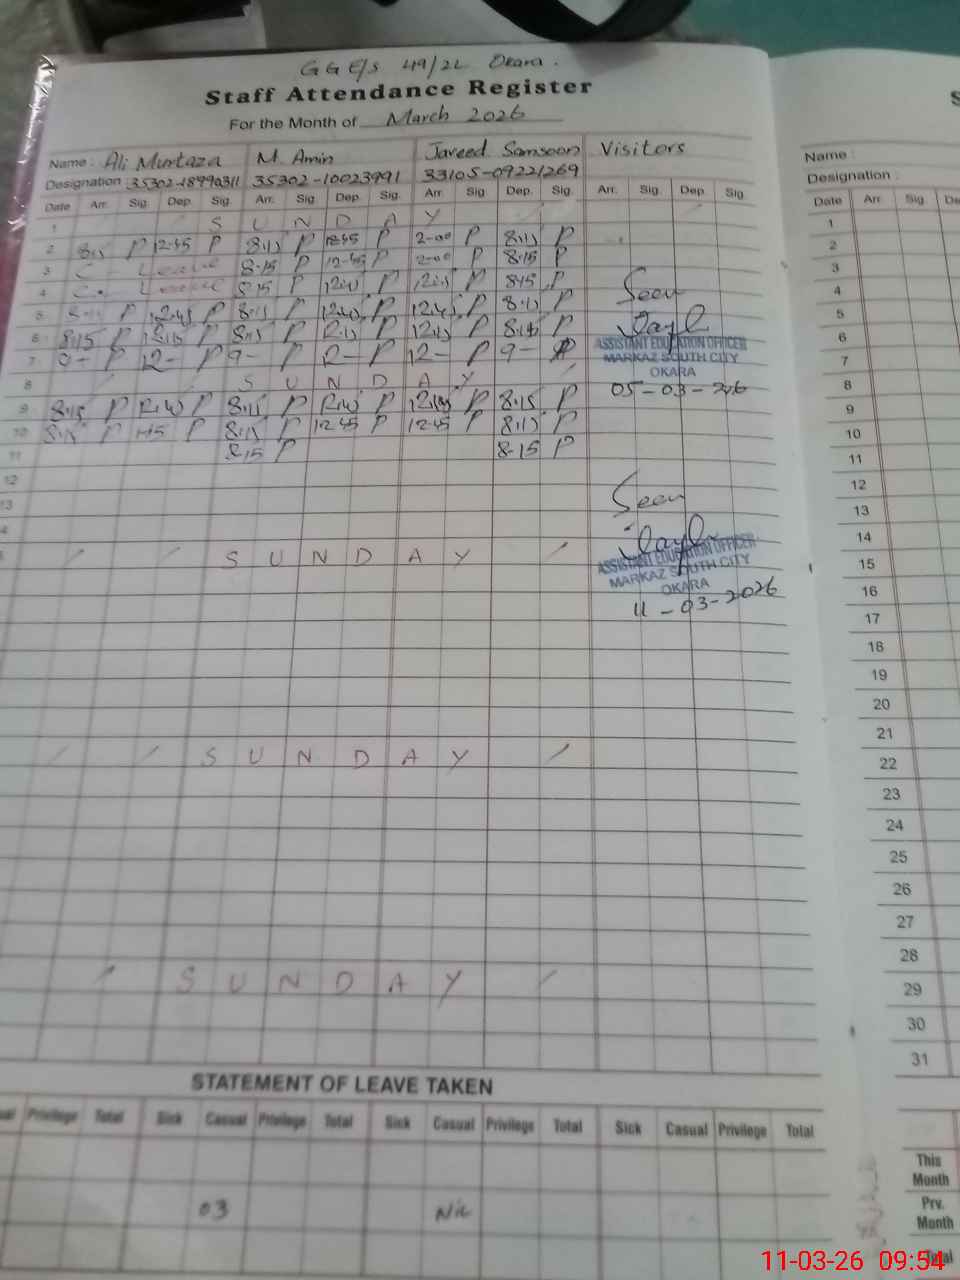 GGE/S 49/2L Okara.
Staff Attendance Register
For the Month of March 2026
Name: Ali Murtaza M. Amin Javeed Samsoon Visitors
Designation 35302-10023991 33105-09221269
Date Arr. Sig. Dep. Sig. Arr. Sig. Dep. Sig. Arr. Sig. Dep. Sig. Arr. Sig. Dep. Sig.
1 S U N D A Y
2 8:15 P 12:45 P 8:15 P 12:45 P 2-00 P 8:15 P
3 C. Leave 8:15 P 12-45 P 2-00 P 8:15 P
4 C. Leave 8:15 P P P 8:15 P
5 8:15 P 12:45 P 8:15 P 12:45 P 12:45 P 8:15 P
6 8:15 P P 8:15 P P P 8:15 P
7 9- P 12- P 9- P 12- P 12- P 9- P
8 S U N D A Y
9 8:15 P P 8:15 P P P 8:15 P
10 8:15 P P 8:15 P 12:45 P 12:45 P 8:15 P
11 8:15 P 8-15 P
12
13
S U N D A Y
S U N D A Y
S U N D A Y
Seen
ASSISTANT EDUCATION OFFICER
MARKAZ SOUTH CITY
OKARA
05-03-26
Seen
ASSISTANT EDUCATION OFFICER
MARKAZ SOUTH CITY
OKARA
11-03-2026
STATEMENT OF LEAVE TAKEN
Privilege Total Sick Casual Privilege Total Sick Casual Privilege Total Sick Casual Privilege Total
03 Nil
S
Name:
Designation:
Date Arr. Sig.
1
2
3
4
5
6
7
8
9
10
11
12
13
14
15
16
17
18
19
20
21
22
23
24
25
26
27
28
29
30
31
This
Month
Prv.
Month
Total
11-03-26 09:54